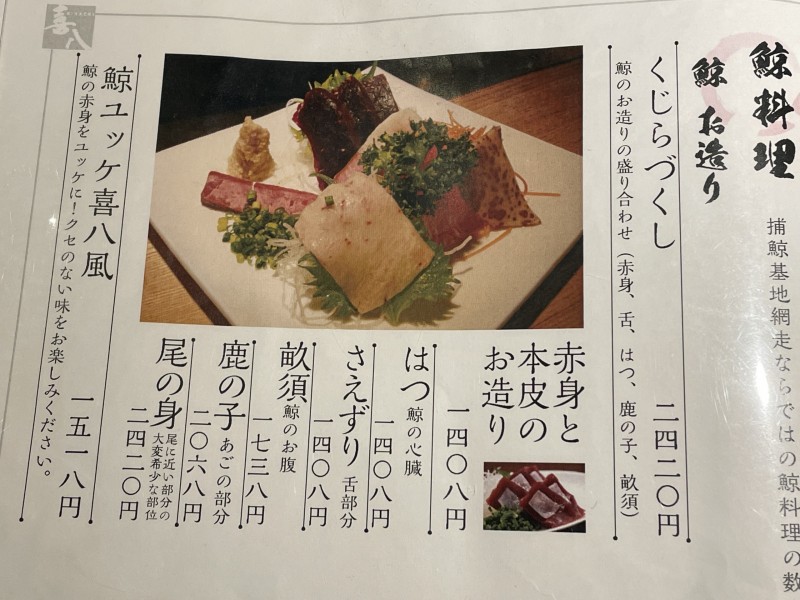 鯨料理
捕鯨基地網走ならではの鯨料理の数
鯨 お造り
くじらづくし
二四二〇円
鯨のお造りの盛り合わせ（赤身、舌、はつ、鹿の子、畝須）
赤身と
本皮の
お造り
一四〇八円
はつ 鯨の心臓
一四〇八円
さえずり 舌部分
一四〇八円
畝須 鯨のお腹
一七三八円
鹿の子 あごの部分
二〇六八円
尾の身 尾に近い部分の
大変希少な部位
二四二〇円
鯨ユッケ喜八風
一五一八円
鯨の赤身をユッケに！クセのない味をお楽しみください。
喜八